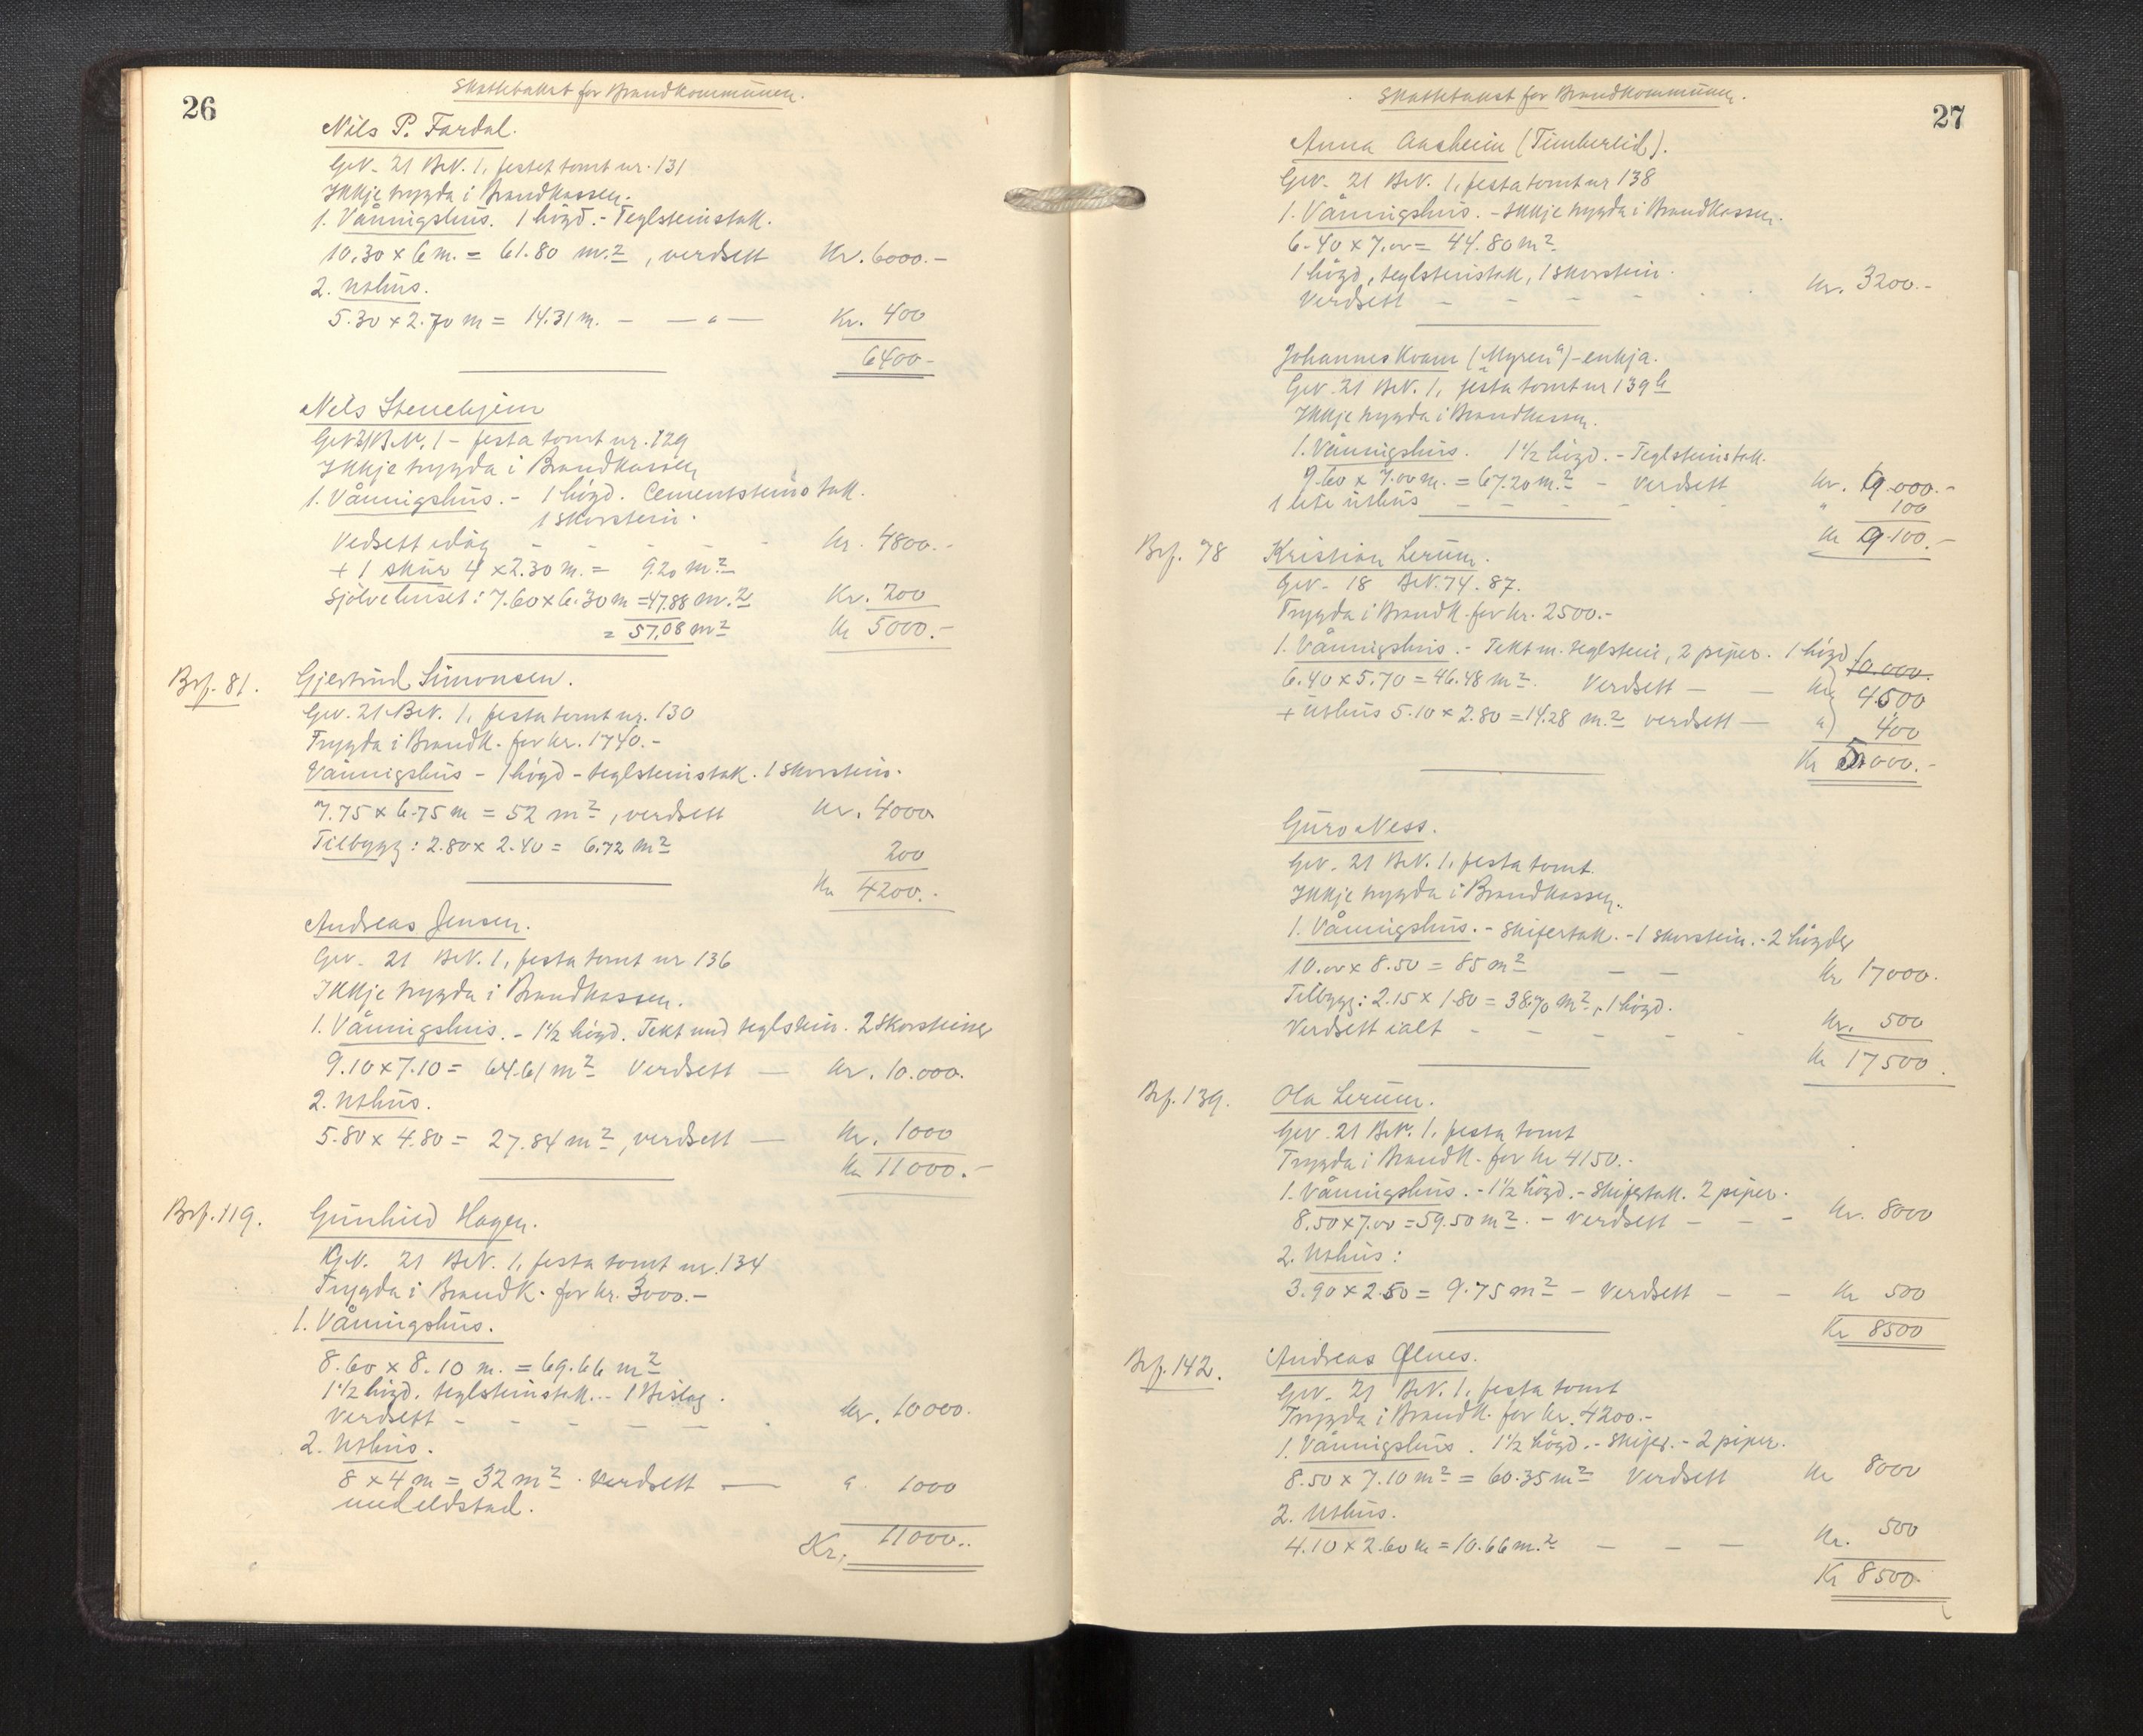 26
Skattetakst for Brandkommunen.
Nils P. Fardal.
G.N. 21 B.N. 1, festet tomt nr. 131
Ikkje trygda i Brandkassen.
1. Våningshus. 1 högd. - Teglsteinstak.
10,30 x 6 m. = 61.80 m.2, verdsett Kr. 6000.-
2. Uthus.
5.30 x 2.70 m = 14.31 m. - — " — Kr. 400
6400-
Nils Stenehjem
G.N 21 B.N. 1 - festa tomt nr. 129
Ikkje trygda i Brandkassen
1. Våningshus. - 1 högd. Cementsteins tak.
1 skorstein.
Verdsett idag - - - - Kr. 4800.-
+ 1 skur 4 x 2.30 m. = 9.20 m.2
Sjölvehuset: 7.60 x 6.30 m = 47.88 m.2 Kr. 200
= 57,08 m2 Kr 5000.-
Brf. 81. Gjertrud Simonsen.
G.N. 21 B.N. 1, festa tomt nr. 130
Trygda i Brandk. for kr. 1740.-
Våningshus - 1 högd - teglsteinstak. 1 skorstein.
7.75 x 6.75 m = 52 m2, verdsett Kr. 4000
Tilbygg: 2.80 x 2.40 = 6.72 m2 200
Kr 4200.-
Andreas Jensen.
G.N. 21 B.N. 1, festa tomt nr 136
Ikkje trygda i Brandkassen.
1. Våningshus. - 1 1/2 högd. Tekt med teglstein. 2 skorsteiner
9.10 x 7.10 = 64.61 m2 Verdsett — Kr. 10.000.
2. Uthus.
5.80 x 4.80 = 27.84 m2, verdsett — Kr. 1000
Kr 11000.-
Brf. 119. Gunhild Hagen.
G.N. 21 B.N. 1, festa tomt nr. 134
Trygda i Brandk. for kr. 3000.-
1. Våningshus.
8.60 x 8.10 m. = 69.66 m2
1 1/2 högd. teglsteinstak. - 1 Bislag.
Verdsett - - - - - Kr. 10000.
2. Uthus.
8 x 4 m = 32 m2. Verdsett — " 1000
med eldstad.
Kr. 11000..
27
Skattetakst for Brandkommunen.
Anna Aasheim (Timberlid).
G.N. 21 B.N. 1, festa tomt nr 138
1. Våningshus. - Ikkje trygda i Brandkassen.
6.40 x 7.00 = 44.80 m2
1 högd, teglsteinstak, 1 skorstein.
Verdsett - - - - - Kr. 3200.-
Johannes Kvam ("Myren") - enkja.
G.N. 21 B.N. 1, festa tomt nr 139 b
Ikkje trygda i Brandkassen.
1. Våningshus. 1 1/2 högd. - Teglsteinstak.
9.60 x 7.00 m. = 67.20 m.2 - Verdsett Kr. 9.000.-
1 lite uthus - - - - - " 100
Kr 9.100.-
Brf. 78 Kristian Lerum.
G.N. 18 B.N. 74. 87.
Trygda i Brandk. for kr. 2500.-
1. Våningshus. - Tekt m. teglstein, 2 piper. 1 högd
10.000.
6.40 x 5.70 = 46.48 m2. Verdsett — — Kr 4500
+ uthus 5.10 x 2.80 = 14.28 m.2 verdsett — " 400
Kr 5000.-
Guro Ness.
G.N. 21 B.N. 1, festa tomt.
Ikkje trygda i Brandkassen.
1. Våningshus. - Skifertak. - 1 skorstein. - 2 högder
10.00 x 8.50 = 85 m2 — — Kr 17000.
Tilbygg: 2.15 x 1.80 = 38.70 m2, 1 högd.
Verdsett ialt - - - - - Kr. 500
Kr 17500.
Brf. 139. Ola Lerum.
G.N. 21 B.N. 1, festa tomt
Trygda i Brandk. for kr 4150.-
1. Våningshus. - 1 1/2 högd. - Skifertak. 2 piper.
8.50 x 7.00 = 59.50 m2. - Verdsett - - - Kr. 8000
2. Uthus:
3.90 x 2.50 = 9.75 m2 - Verdsett - - Kr 500
Kr 8500
Brf. 142. Andreas Olnes.
G.N. 21 B.N. 1, festa tomt
Trygda i Brandk. for kr. 4200.-
1. Våningshus. 1 1/2 högd. - Skifer. - 2 piper.
8.50 x 7.10 m2 = 60.35 m2 Verdsett Kr 8000
2. Uthus.
4.10 x 2.60 m = 10.66 m.2 — — — Kr. 500
Kr 8500.